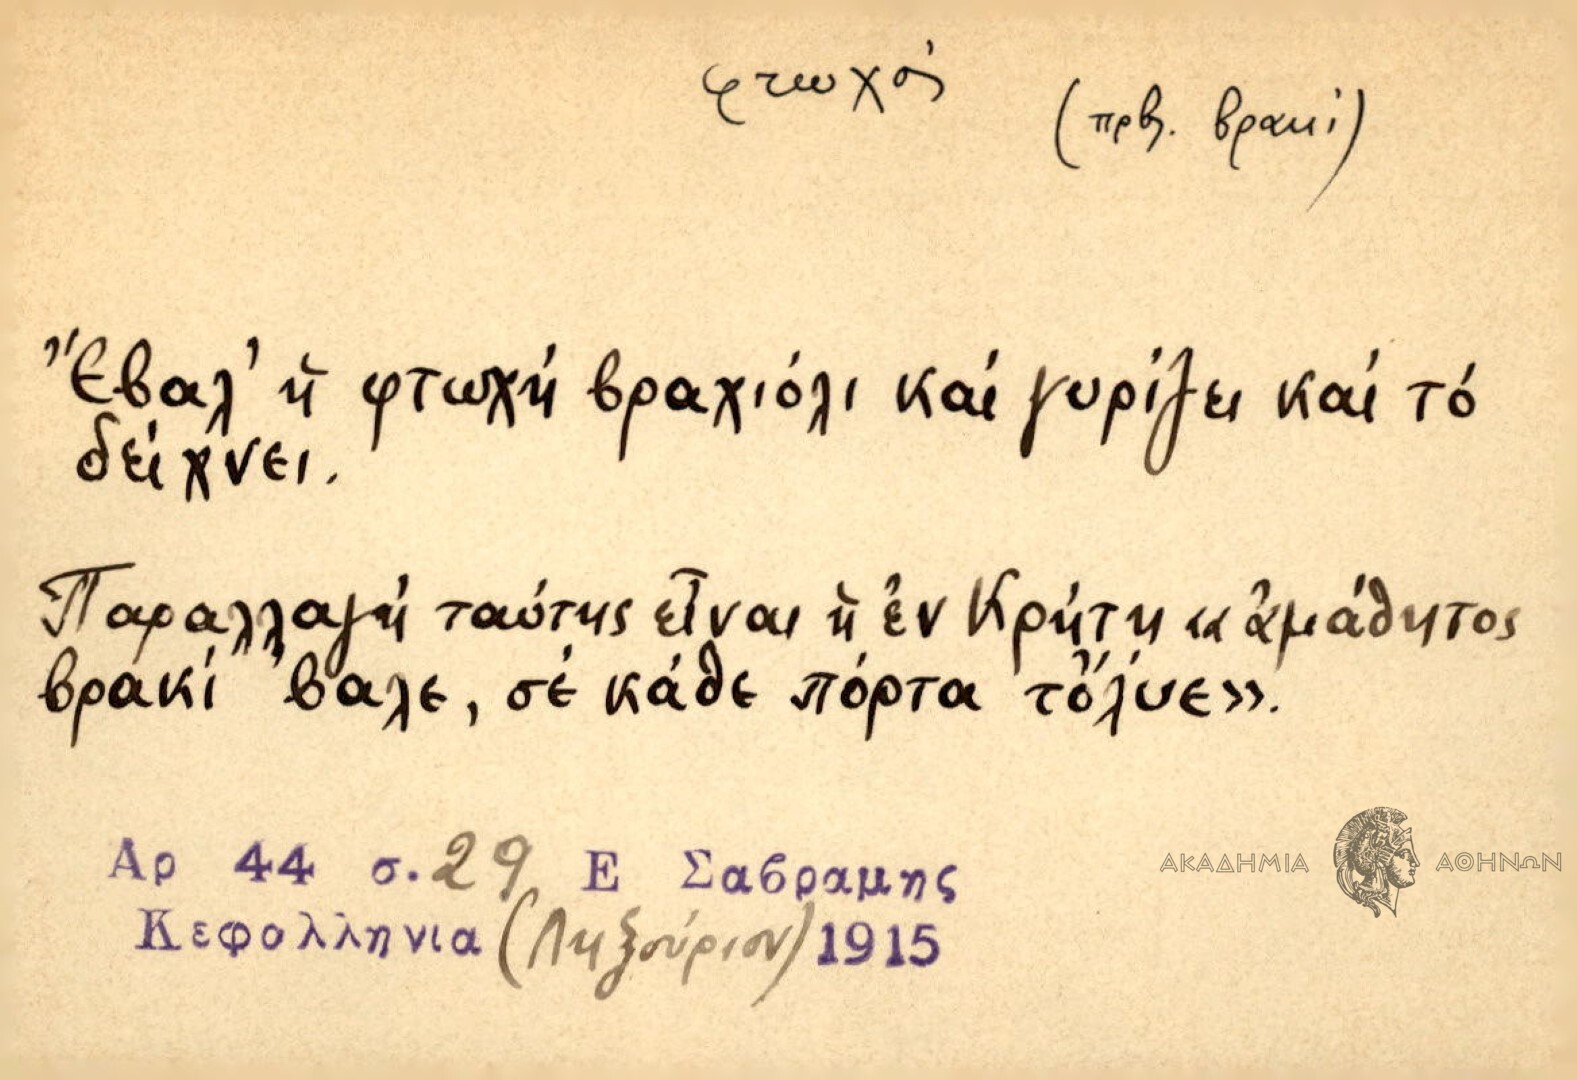 φτωχός
(πρβ. βρακί)
Ἔβαλ' ἡ φτωχή βραχιόλι καί γυρίζει καί τό
δείχνει.
Παραλλαγή ταύτης εἶναι ἡ ἐν Κρήτη «ἀμάθητος
βρακί 'βαλε, σέ κάθε πόρτα τὄλυε».
Αρ 44 σ. 29 Ε Σαβραμης
Κεφαλληνια (Ληξούριον) 1915
ΑΚΑΔΗΜΙΑ ΑΘΗΝΩΝ